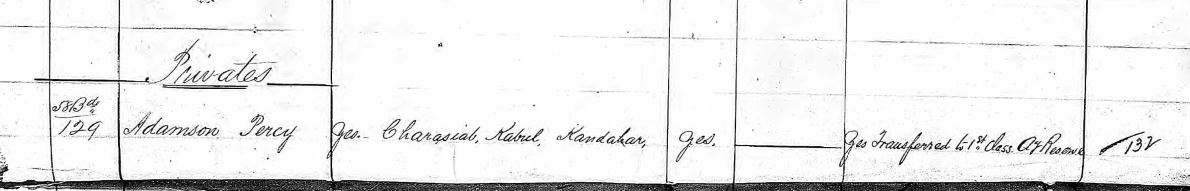 Privates
58 Bde
129 Adamson Percy Yes. Charasiab, Kabul, Kandahar, Yes. Yes Transferred to 1st Class Ay Reserve 132